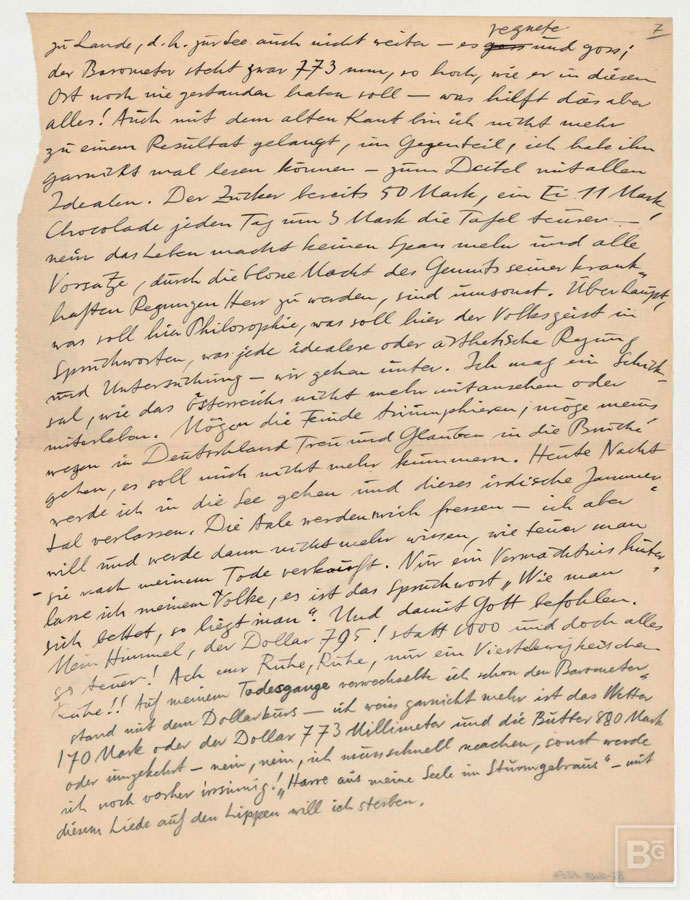 7
regnete
zu Lande, d.h. zur See auch nicht weiter – es goss und goss;
der Barometer steht zwar 773 mm, so hoch, wie er in diesem
Ort noch nie gestanden haben soll – was hilft das aber
alles! Auch mit dem alten Kant bin ich nicht mehr
zu einem Resultat gelangt, im Gegenteil, ich habe ihn
garnicht mal lesen können – zum Deibel mit allen
Idealen. Der Zucker bereits 50 Mark, ein Ei 11 Mark,
Chocolade jeden Tag um 3 Mark die Tafel teurer –
nein das Leben macht keinen Spass mehr und alle
Vorsätze, durch die blosse Macht des Gemüts seiner krank-
haften Regungen Herr zu werden, sind umsonst. Überhaupt,
was soll hier Philosophie, was soll hier der Volksgeist in
Spruchworten, was jede idealere oder ästhetische Regung
und Untersuchung – wir gehen unter. Ich mag ein Schick-
sal, wie das Österreichs nicht mehr mitansehen oder
miterleben. Mögen die Feinde triumphieren, möge meins
wegen in Deutschland Treu und Glauben in die Brüche
gehen, es soll mich nicht mehr kümmern. Heute Nacht
werde ich in die See gehen und dieses irdische Jammer-
tal verlassen. Die Aale werden mich fressen – ich aber
will und werde dann nicht mehr wissen, wie teuer man
sie nach meinem Tode verkauft. Nur ein Vermächtnis hinter-
lasse ich meinem Volke, es ist das Spruchwort „Wie man
sich bettet, so liegt man“. Und damit Gott befohlen.
Mein Himmel, der Dollar 795! statt 1000 und doch alles
so teuer! Ach nur Ruhe, Ruhe, nur ein Viertelewigkeitchen
Ruhe!! Auf meinem Todesgange verwechselte ich schon den Barometer-
stand mit dem Dollarkurs – ich weiss garnicht mehr ist das Wetter
170 Mark oder der Dollar 773 Millimeter und die Butter 880 Mark
oder umgekehrt – nein, nein, ich muss schnell machen, sonst werde
ich noch vorher irrsinnig! „Harre aus meine Seele im Sturmgebraus“ – mit
diesem Liede auf den Lippen will ich sterben.
BG